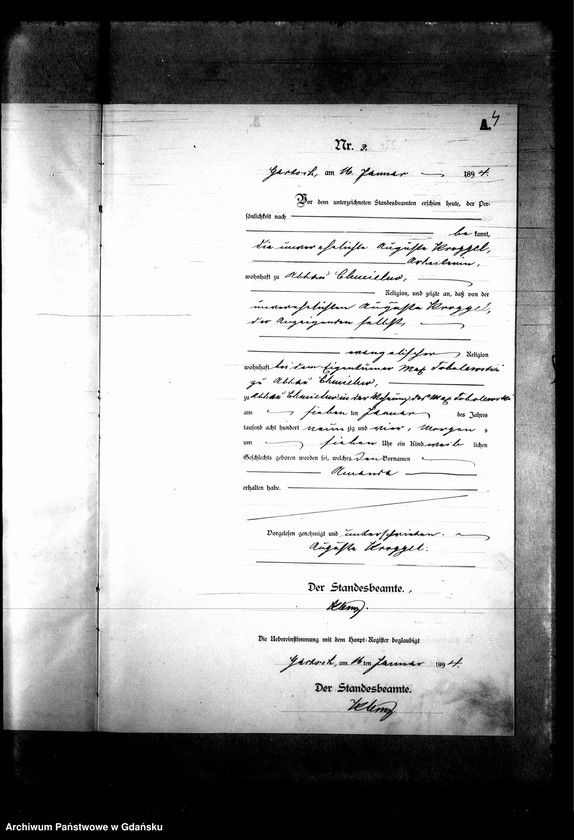 A. 4
Nr. 3.
am 16. Januar 1894.
Vor dem unterzeichneten Standesbeamten erschien heute, der Per-
sönlichkeit nach
be kannt,
die unverehelichte Auguste Kroggel,
Arbeiterin,
wohnhaft zu Abbau Chmielno,
Religion, und zeigte an, daß von der
unverehelichten Auguste Kroggel,
der Anzeigenden selbst,
evangelischer Religion
wohnhaft bei dem Eigentümer Max
zu Abbau Chmielno,
zu Abbau Chmielno in der Wohnung des Max
am sieben ten Januar des Jahres
tausend acht hundert neun zig und vier, Morgens
um sieben Uhr ein Kind weib lichen
Geschlechts geboren worden sei, welches den Vornamen
Amanda
erhalten habe.
Vorgelesen genehmigt und unterschrieben.
Auguste Kroggel.
Der Standesbeamte.
Die Uebereinstimmung mit dem Haupt-Register beglaubigt
am 16 ten Januar 1894.
Der Standesbeamte.
Archiwum Państwowe w Gdańsku